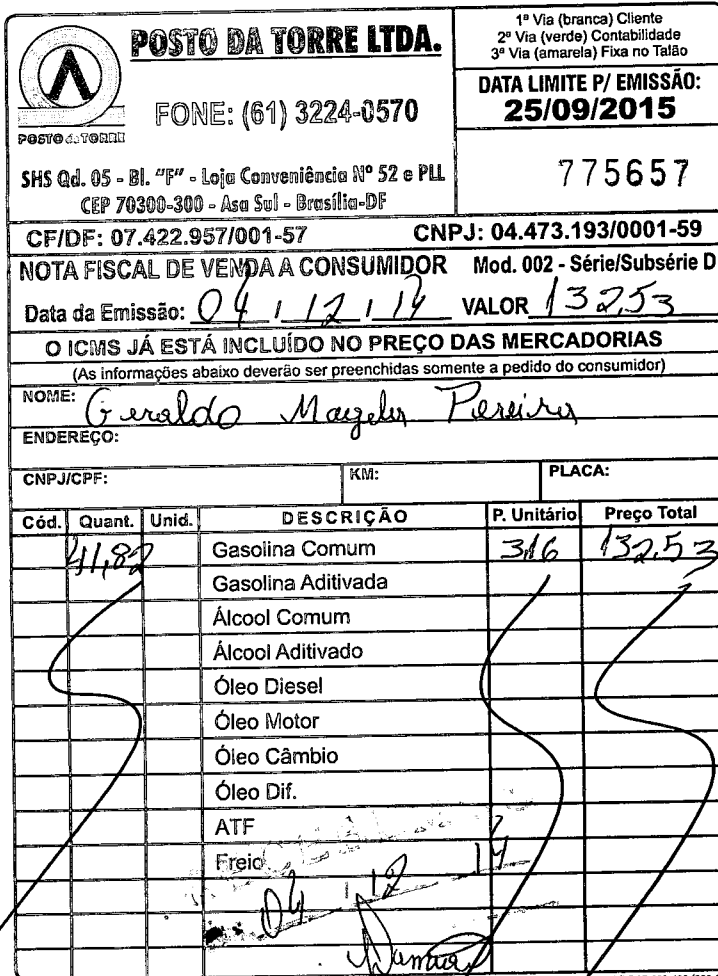 POSTO DA TORRE LTDA.
FONE: (61) 3224-0570
POSTO da TORRE
SHS Qd. 05 - Bl. "F" - Loja Conveniência Nº 52 e PLL
CEP 70300-300 - Asa Sul - Brasília-DF
1ª Via (branca) Cliente
2ª Via (verde) Contabilidade
3ª Via (amarela) Fixa no Talão
DATA LIMITE P/ EMISSÃO:
25/09/2015
775657
CF/DF: 07.422.957/001-57 CNPJ: 04.473.193/0001-59
NOTA FISCAL DE VENDA A CONSUMIDOR Mod. 002 - Série/Subsérie D
Data da Emissão: 04 / 12 / 14 VALOR 132,53
O ICMS JÁ ESTÁ INCLUÍDO NO PREÇO DAS MERCADORIAS
(As informações abaixo deverão ser preenchidas somente a pedido do consumidor)
NOME: Geraldo Magela Pereira
ENDEREÇO:
CNPJ/CPF: KM: PLACA:
Cód. Quant. Unid. DESCRIÇÃO P. Unitário Preço Total
41,82 Gasolina Comum 3,16 132,53
Gasolina Aditivada
Álcool Comum
Álcool Aditivado
Óleo Diesel
Óleo Motor
Óleo Câmbio
Óleo Dif.
ATF
Freio
04 12 14